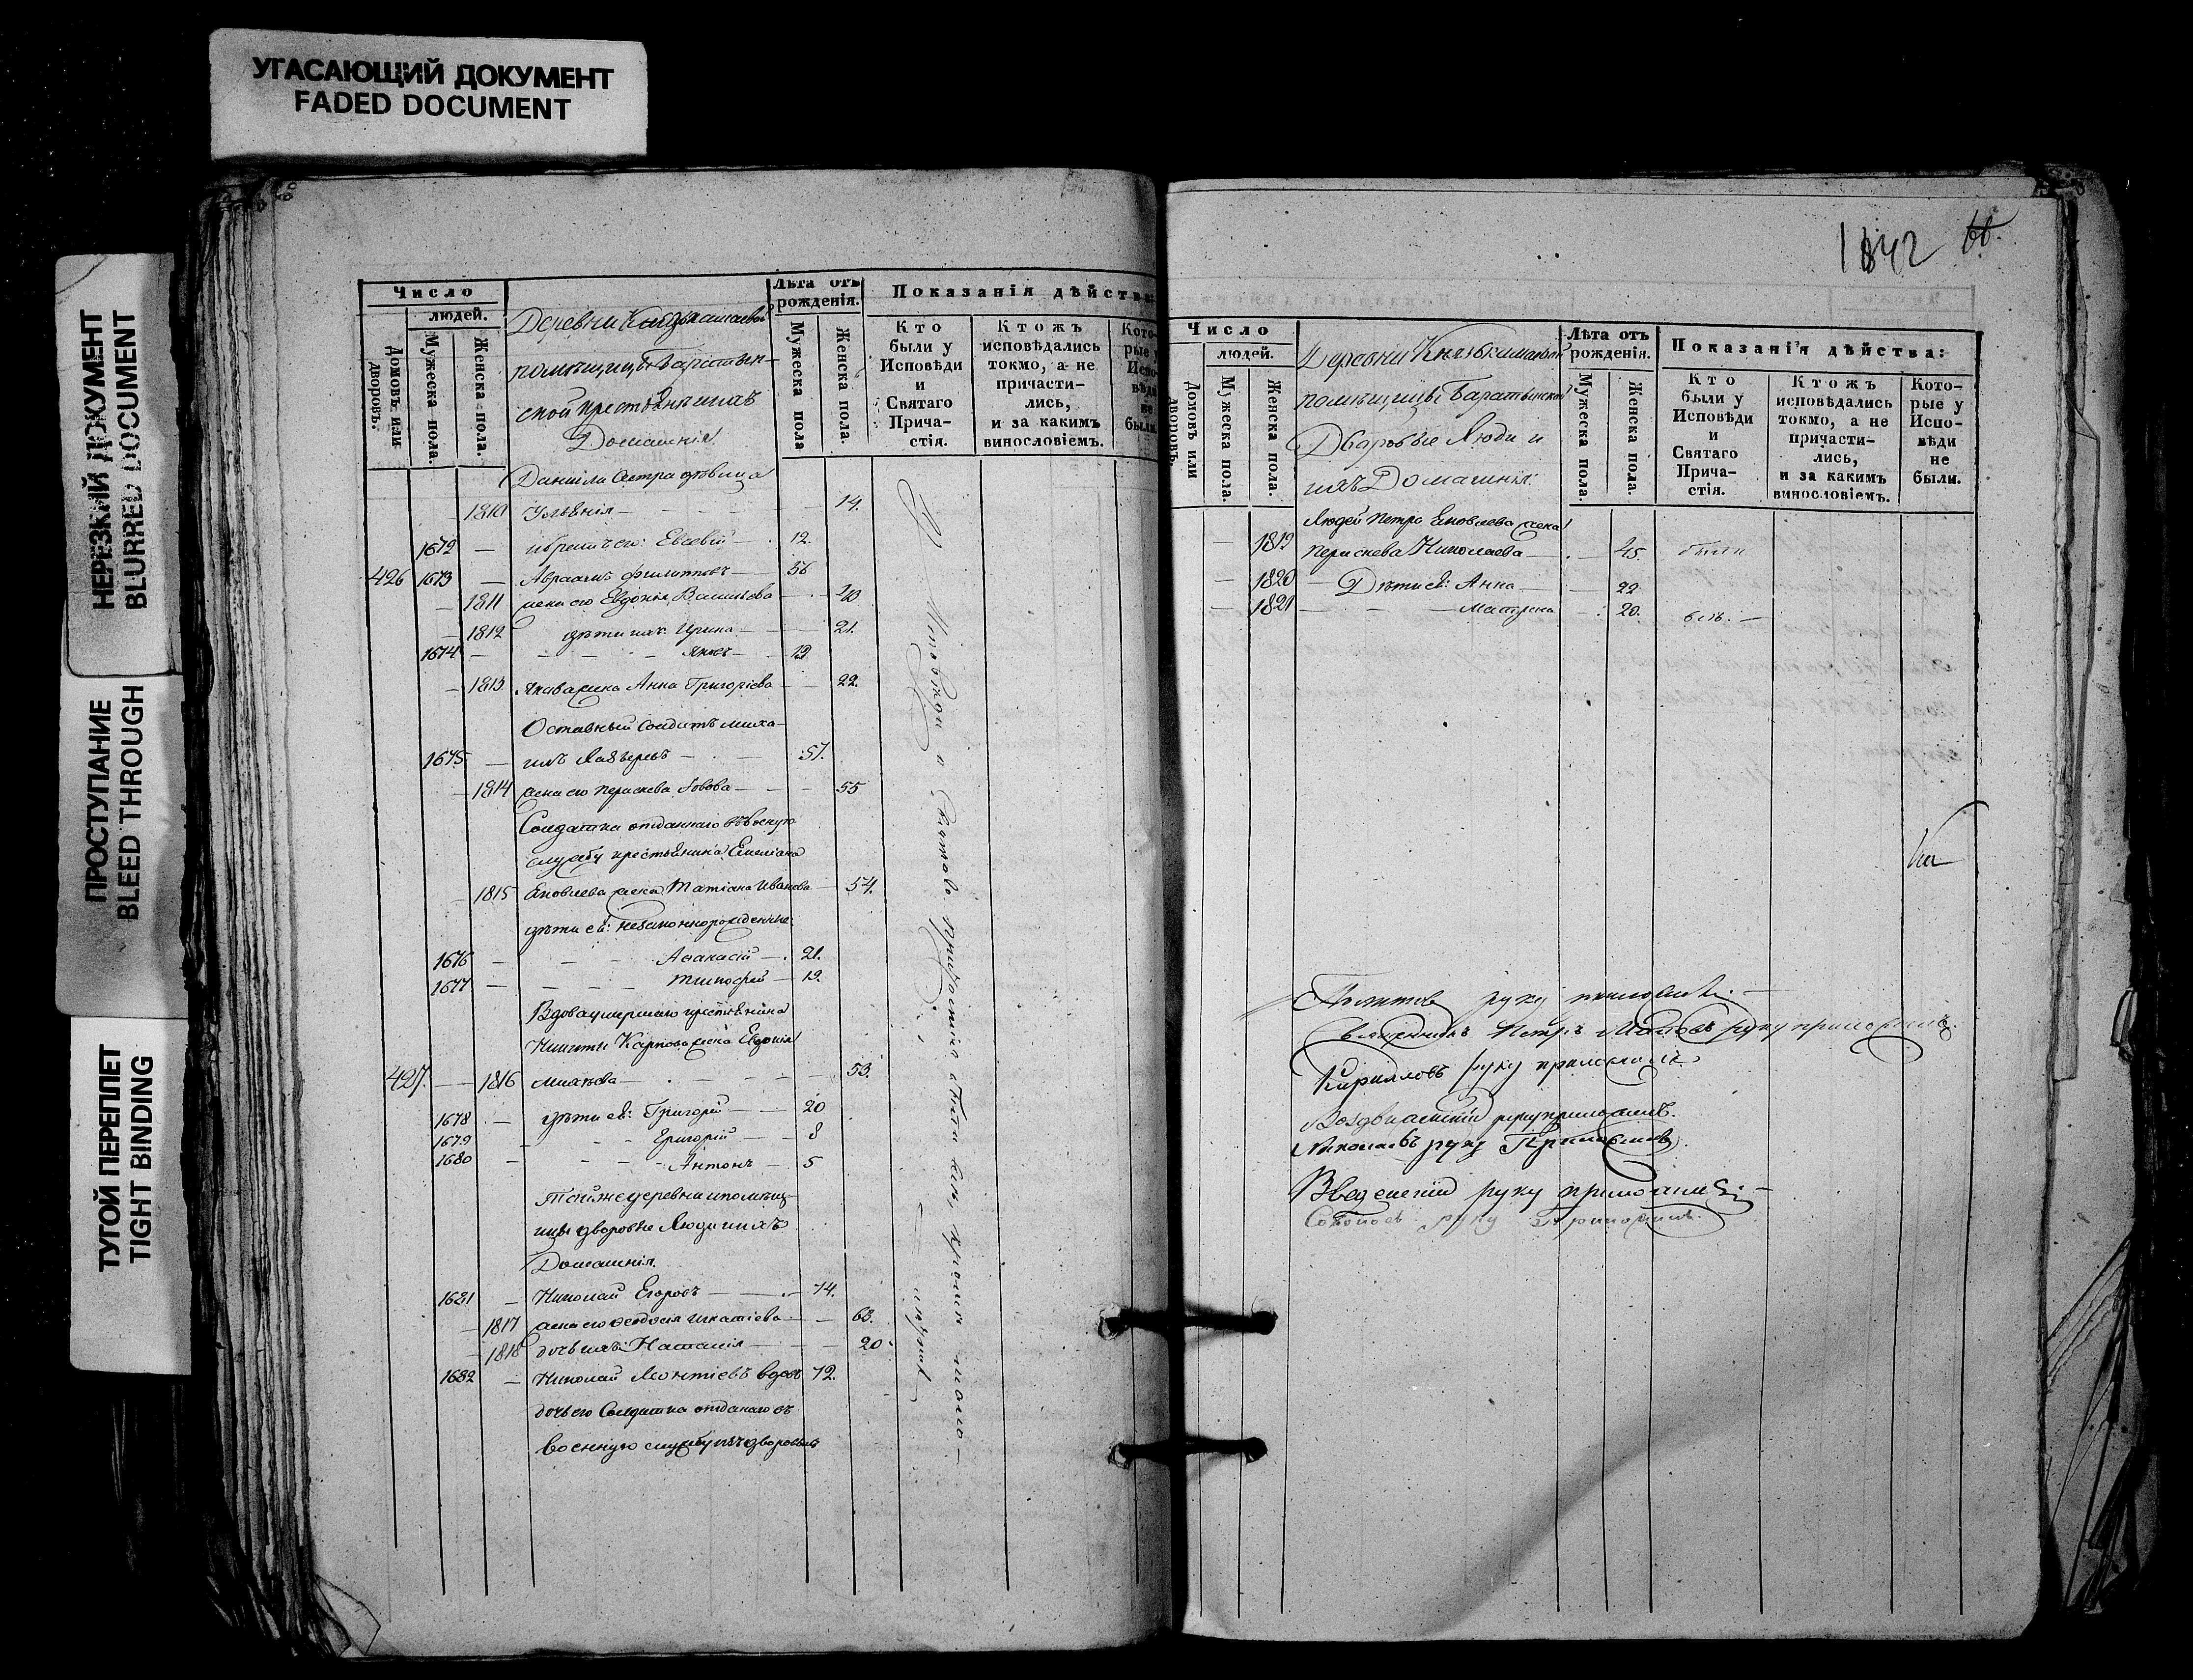 УГАСАЮЩИЙ ДОКУМЕНТ
FADED DOCUMENT
НЕРЕЗКИЙ ДОКУМЕНТ
BLURRED DOCUMENT
ПРОСТУПАНИЕ
BLEED THROUGH
ТУГОЙ ПЕРЕПЛЕТ
TIGHT BINDING
Число
людей.
Домовъ или дворовъ.
Мужеска пола.
Женска пола.
Деревни
помѣщицы Баратын-
ской крестьяне и ихъ
Домашнія
Лѣта отъ рожденія.
Мужеска пола
Женска пола.
Показанія дѣйства:
Кто были у Исповѣди и Святаго Прича- стія.
Ктожъ исповѣдались токмо, а не причасти- лись, и за какимъ винословіемъ.
Кото- рые у Испо- вѣди не были.
Даніила Сестра дѣвица
1810 — 14.
1672 — и братъ его: Евсевій — 12.
426 1673 — Авраамъ Филипповъ — 56
1811 жена его Евдокія
1812 дѣти ихъ: Ирина — 21.
1674 — Яковъ — 19
1813 Якова жена Анна Григоріева — 22.
Оставный Солдатъ Миха-
1675 — илъ — 57.
1814 жена его Параскева — 55
Солдатка отданнаго въ военную
службу крестьянина Емеліана
1815 Яковлева жена Татіана Иванова — 54.
дѣти ея: незаконнорожденные:
1676 — Аѳанасій — 21.
1677 — Тимофей — 19.
Вдова умершаго крестьянина
Никиты Карпова жена Евдокія
427. — 1816 — 53.
1678 — дѣти ея: Григорій — 20
1679 — Григорій — 8
1680 — Антонъ — 5
Той же деревни и помѣщи-
цы дворовые Люди и ихъ
Домашнія.
1681 — Николай Егоровъ — 74.
1817 жена его Феодосія Игнатіева — 63.
1818 дочь ихъ: Наталія — 20.
1682 — Николай Леонтіевъ вдовъ 72.
дочь его Солдатка отданаго въ
военную службу изъ дворовыхъ
1842
Число
людей.
Домовъ или дворовъ.
Мужеска пола.
Женска пола.
Деревни
помѣщицы Баратынской
Дворовые Люди и
ихъ Домашнія:
Лѣта отъ рожденія.
Мужеска пола.
Женска пола.
Показанія дѣйства:
Кто были у Исповѣди и Святаго Прича- стія.
Ктожъ исповѣдались токмо, а не причасти- лись, и за какимъ винословіемъ.
Кото- рые у Испо- вѣди не были.
Людей Петра Яковлева жена
1819 Параскева Николаева — 45. были
1820 — Дѣти ея: Анна — 22
1821 — Матрона — 20.
руку приложилъ.
Священникъ Петръ руку приложилъ.
Кирилловъ руку приложилъ
Воздвиженскій руку приложилъ.
Николаевъ руку Приложилъ.
Введенскій руку приложилъ
руку Приложилъ.